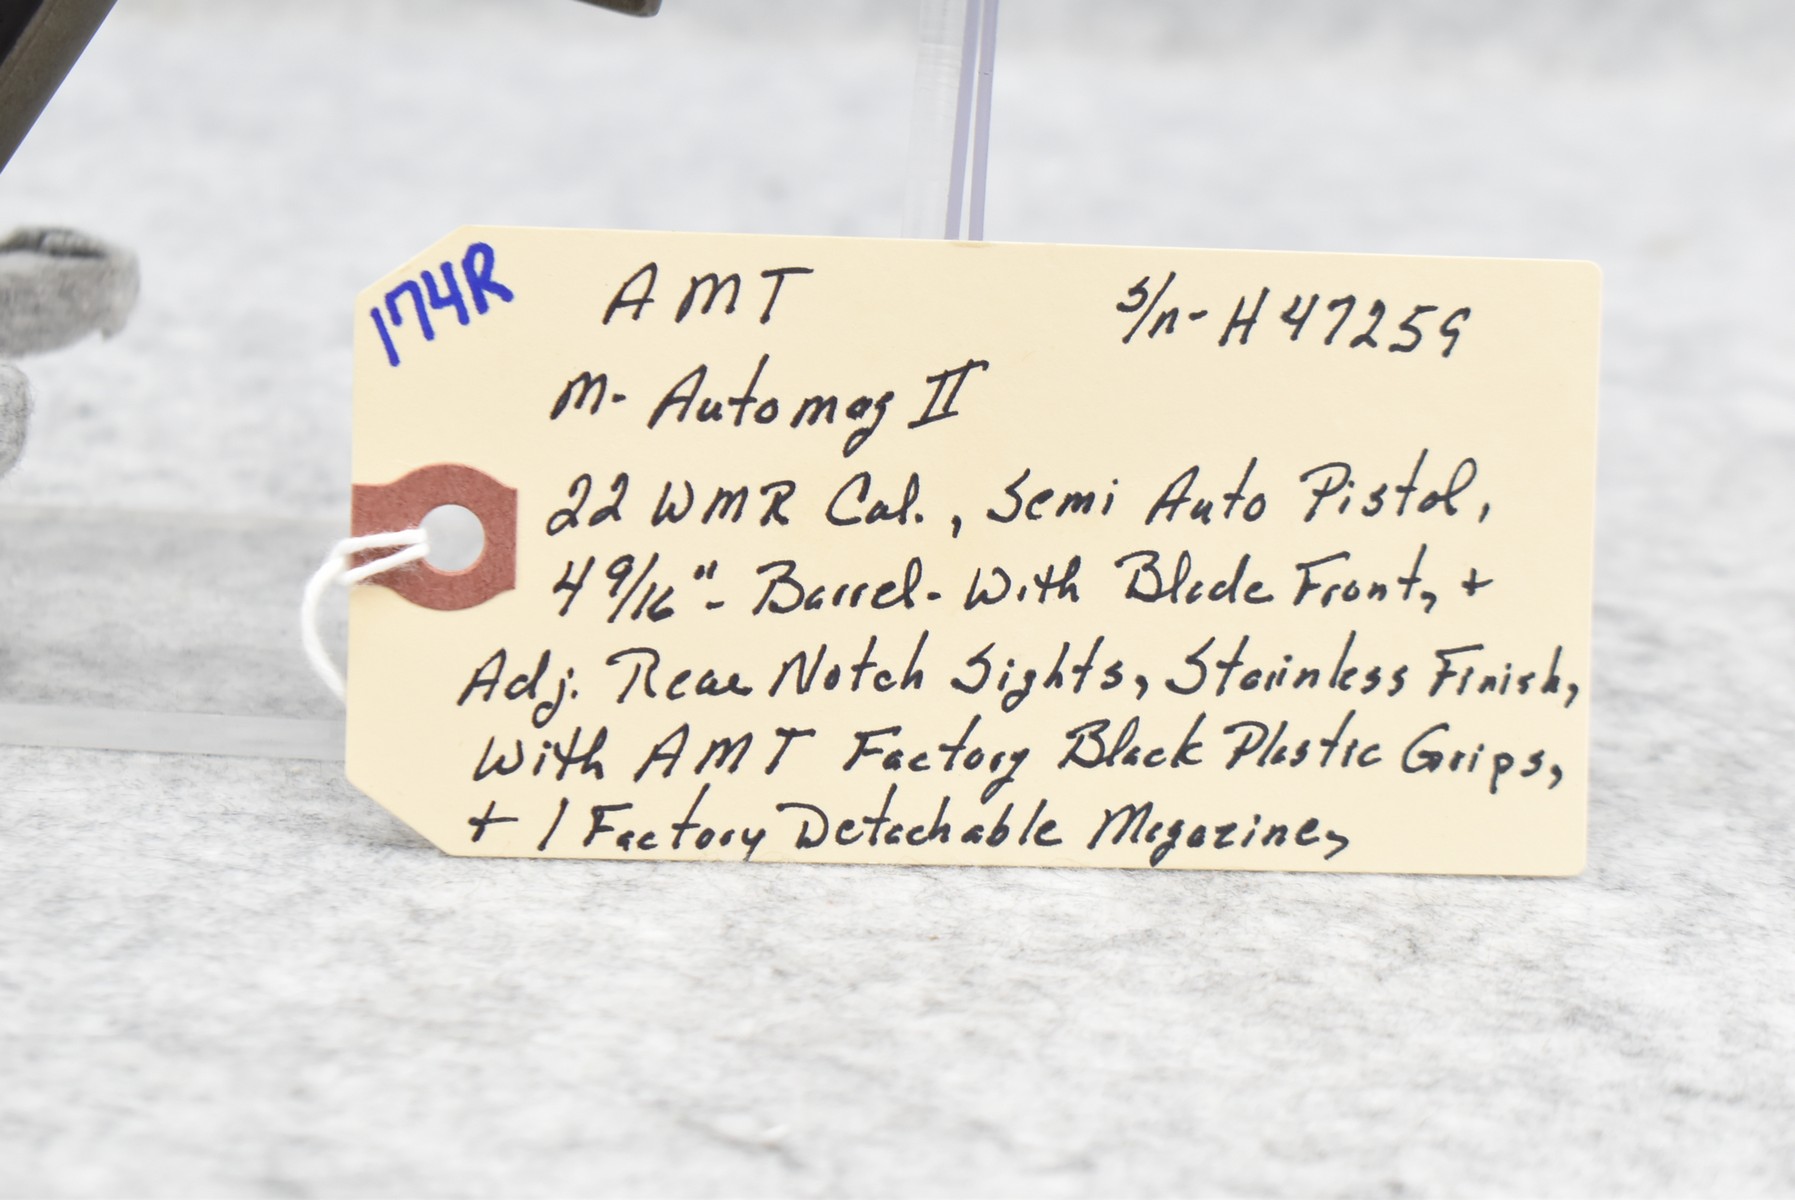 174R
AMT S/n- H47259
M- Automag II
22 WMR Cal., Semi Auto Pistol,
4 9/16"- Barrel- With Blade Front, +
Adj. Rear Notch Sights, Stainless Finish,
With AMT Factory Black Plastic Grips,
+ 1 Factory Detachable Magazine,